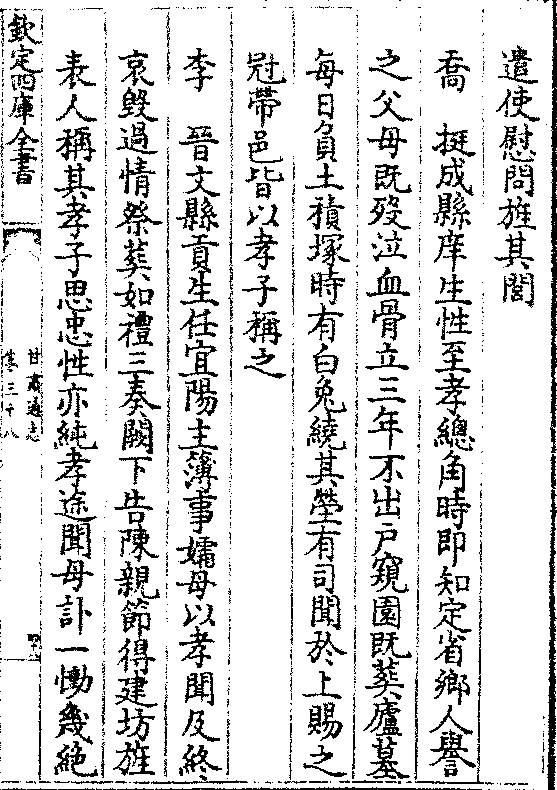 遣使慰問旌其閭
喬　挺成縣庠生性至孝總角時即知定省鄉人譽
之父母既歿泣血骨立三年不出戶窺園既葬廬墓
每日負土積塚時有白兔繞其塋有司聞於上賜之
冠帶邑皆以孝子稱之
李　晉文縣貢生任宜陽主簿事孀母以孝聞及終
哀毀過情祭葬如禮三奏闕下告陳親節得建坊旌
表人稱其孝子思忠性亦純孝途聞母訃一慟幾絕
欽定四庫全書
甘肅通志
卷三十八